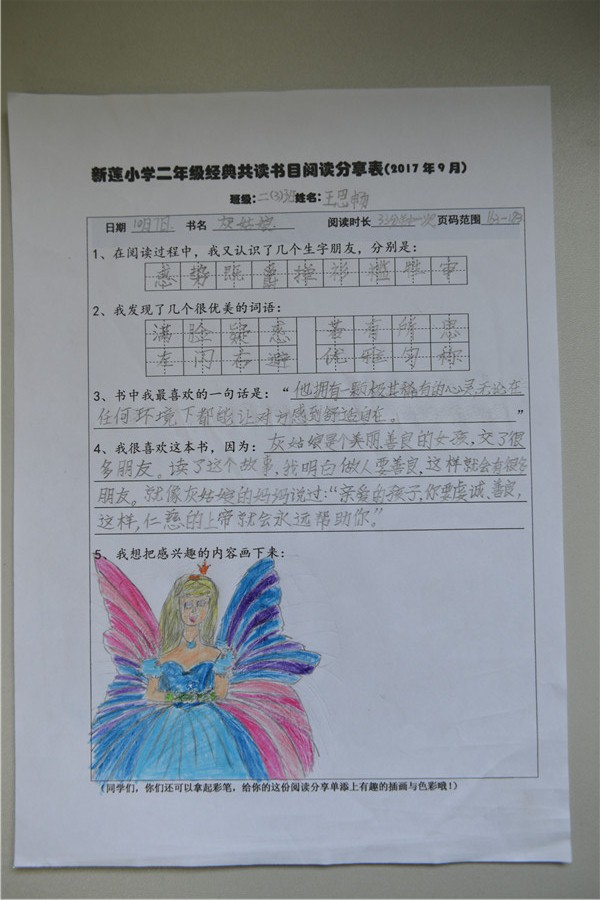 新莲小学二年级经典共读书目阅读分享表(2017年9月)
班级:二(3)班姓名:王思畅
日期 10月7日 书名 灰姑娘 阅读时长 页码范围
1、在阅读过程中,我又认识了几个生字朋友,分别是:
感
2、我发现了几个很优美的词语:
满脸疑惑 若有所思
左闪右避 优雅
3、书中我最喜欢的一句话是:“他拥有一颗极其稀有的心灵无论在
任何环境下都能让对方感到舒适自在。”
4、我很喜欢这本书,因为:灰姑娘是个美丽善良的女孩,交了很
多朋友。读了这个故事,我明白做人要善良,这样就会有很多
朋友。就像灰姑娘的妈妈说过:“亲爱的孩子,你要虔诚、善良,
这样,仁慈的上帝就会永远帮助你。”
5、我想把感兴趣的内容画下来:
(同学们,你们还可以拿起彩笔,给你的这份阅读分享单添上有趣的插画与色彩哦!)